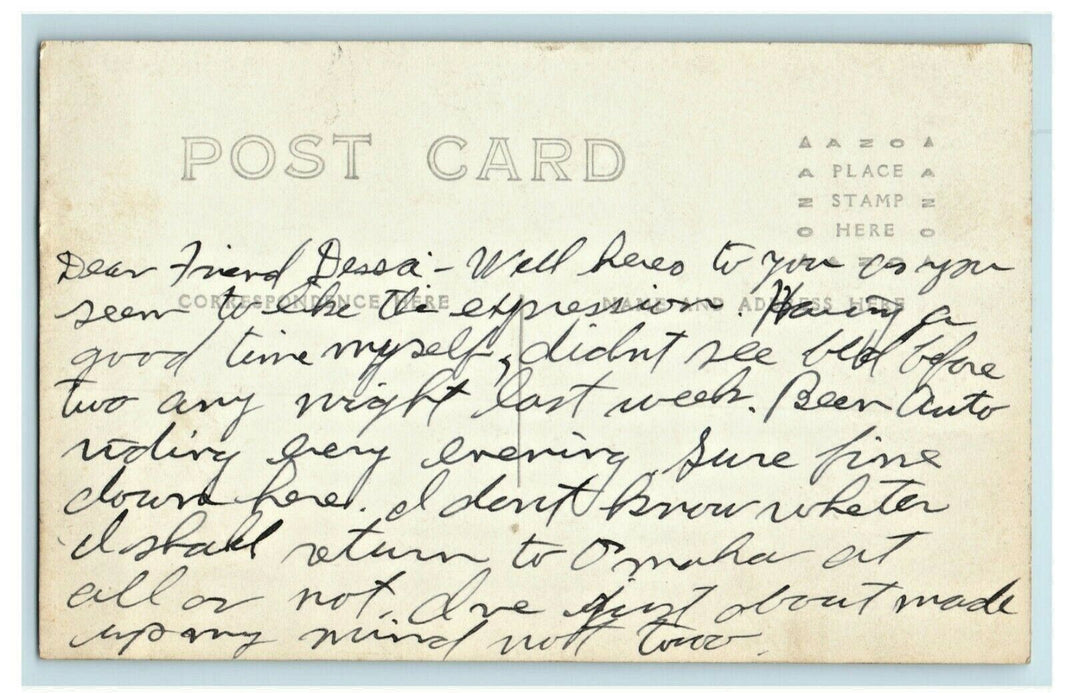 POST CARD
AZOA
PLACE
STAMP
HERE
AZOA
CORRESPONDENCE HERE
NAME AND ADDRESS HERE
Dear Friend Dessa - Well heres to you as you
seem to like the expression. Having a
good time myself, didnt see bed before
two any night last week. Been Auto
riding every evening. Sure fine
down here. I dont know wheter
I shall return to Omaha at
all or not. Ive just about made
up my mind not too.